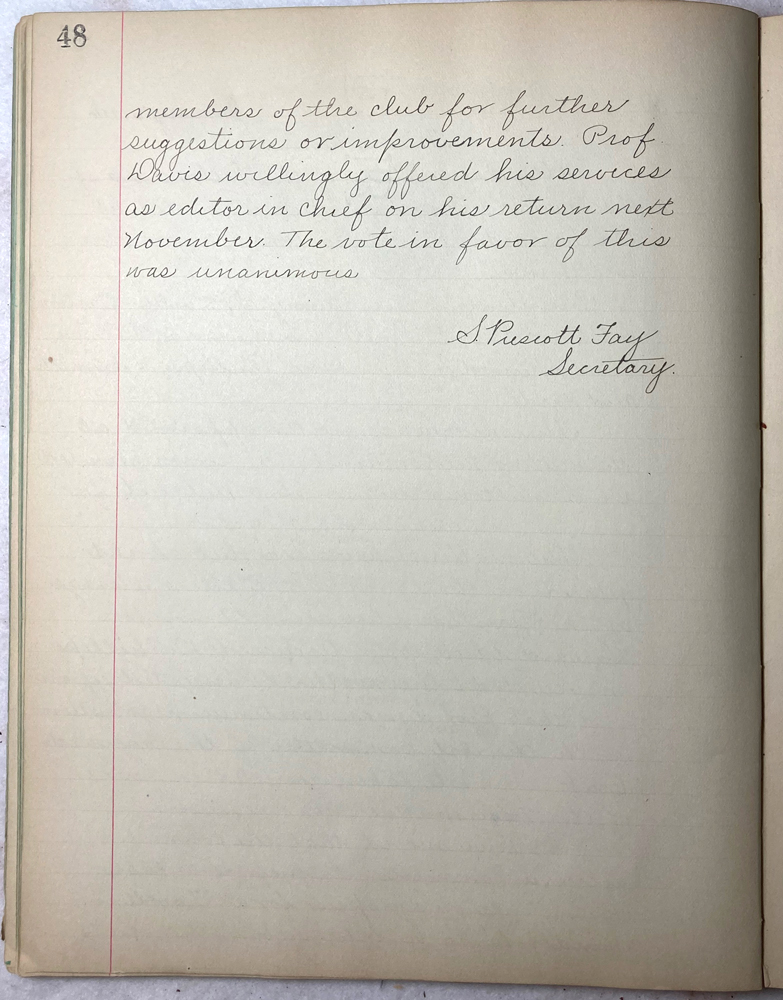 48
members of the club for further
suggestions or improvements. Prof.
Davis willingly offered his services
as editor in chief on his return next
November. The vote in favor of this
was unanimous
S. Prescott Fay
Secretary.